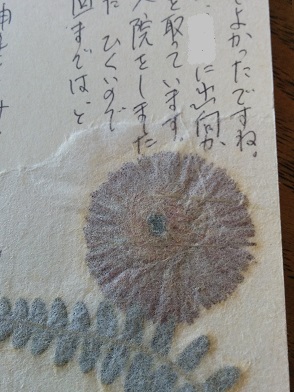 よかったですね。
に出向か
を取っています。
入院をしました
た ひくいので
回まではど